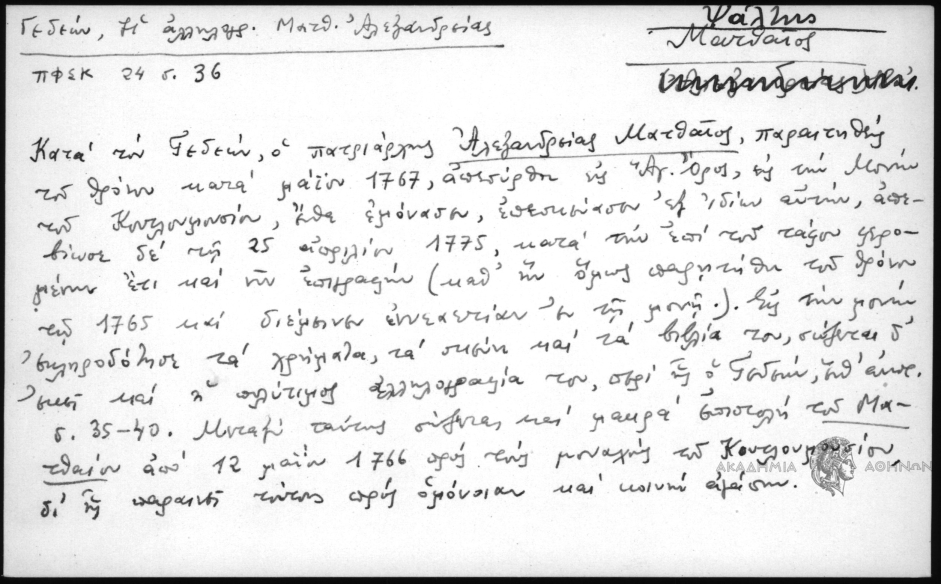 Γεδεών, Ἡ ἀλληλογρ. Ματθ. Ἀλεξανδρείας
Ψάλτης
Ματθαῖος
ΠΦΣΚ 24 σ. 36
Κατά τόν Γεδεών, ὁ πατριάρχης Ἀλεξανδρείας Ματθαῖος, παραιτηθείς
τοῦ θρόνου κατά μάϊον 1767, ἀπεσύρθη εἰς Ἅγ. Ὄρος, εἰς τήν Μονήν
τοῦ Κουτλουμουσίου, ἔνθα ἐμόνασεν, ἐπεσκεύασεν ἐξ ἰδίων αὐτήν, ἀπε-
βίωσε δέ τῇ 25 ἀπριλίου 1775, κατά τήν ἐπί τοῦ τάφου φερο-
μένην ἔτι καί νῦν ἐπιγραφήν (καθ' ἥν ὅμως παρῃτήθη τοῦ θρόνου
τῷ 1765 καί διέμεινεν ἐννεαετίαν ἐν τῇ μονῇ.). Εἰς τήν μονήν
ἐκληροδότησε τά χρήματα, τά σκεύη καί τά βιβλία του, σώζεται δ'
ἐκεῖ καί ἡ πολύτιμος ἀλληλογραφία του, περί ἧς ὁ Γεδεών, ἔνθ' ἀνωτ.
σ. 35-40. Μεταξύ ταύτης σώζεται καί μακρά ἐπιστολή τοῦ Μα-
τθαίου ἀπό 12 μαΐου 1766 πρός τούς μοναχούς τοῦ Κουτλουμουσίου
δι' ἧς παραινεῖ τούτους πρός ὁμόνοιαν καί κοινήν
ΑΚΑΔΗΜΙΑ ΑΘΗΝΩΝ